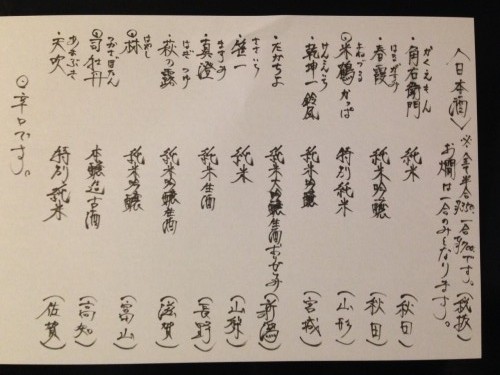 〈日本酒〉 ※全て半合 一合 です。(税抜)
お燗は一合のみとなります。
かくえもん
・角右衛門 純米 (秋田)
はるがすみ
・春霞 純米吟醸 (秋田)
よねづる
⊙米鶴かっぱ 特別純米 (山形)
けんこんいち
・乾坤一 鈴風 純米吟醸 (宮城)
・たかちよ 純米大吟醸生酒 (新潟)
ささいち
・笹一 純米 (山梨)
ますみ
・真澄 純米生酒 (長野)
はぎ つゆ
・萩の露 純米吟醸生酒 (滋賀)
はやし
⊙林 純米吟醸 (富山)
つかさぼたん
⊙司牡丹 本醸造古酒 (高知)
あまぶき
・天吹 特別純米 (佐賀)
⊙辛口です。